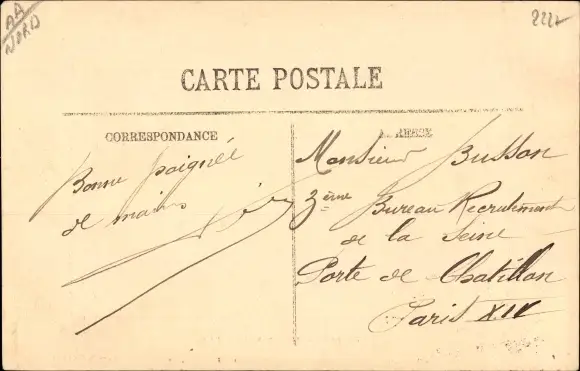 AA
NORD
CARTE POSTALE
CORRESPONDANCE
Bonne poignée
de mains
Monsieur Busson
3ème Bureau Recrutement
de la Seine
Porte de Chatillon
Paris XIV